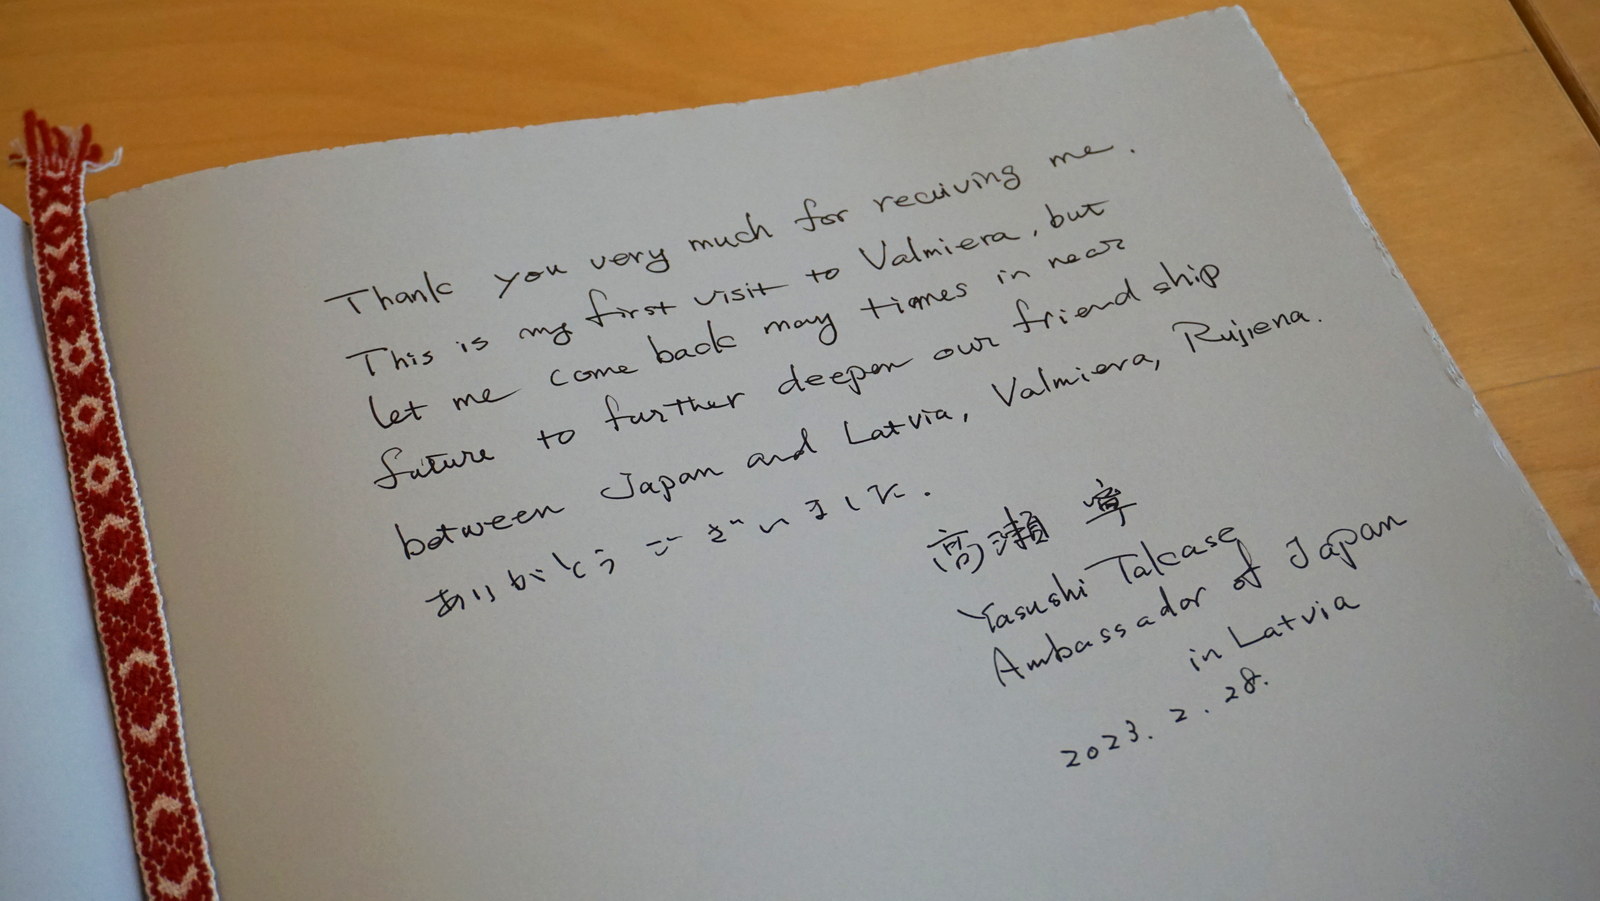 Thank you very much for receiving me.
This is my first visit to Valmiera, but
let me come back may times in near
future to further deepen our friend ship
between Japan and Latvia, Valmiera, Rujiena.
ありがとうございました.
高瀬 寧
Yasushi Takase
Ambassador of Japan
in Latvia
2023. 2. 28.